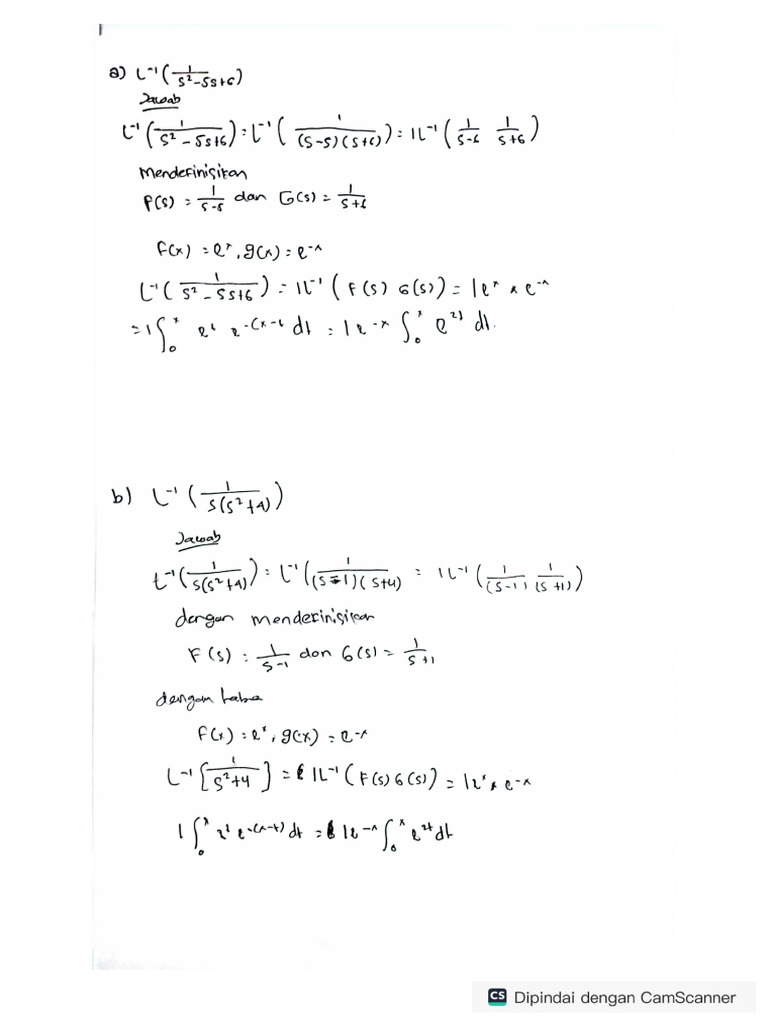 a) L⁻¹(1/(s²-5s+6))
Jawab
L⁻¹(1/(s²-5s+6)) = L⁻¹(1/((s-5)(s+6))) = 1L⁻¹(1/(s-6) 1/(s+6))
Mendefinisikan
F(s) = 1/(s-5) dan G(s) = 1/(s+6)
f(x) = eˣ, g(x) = e⁻ˣ
L⁻¹(1/(s²-5s+6)) = 1L⁻¹(F(s) G(s)) = 1eˣ * e⁻ˣ
= 1∫₀ˣ eᵗ e^-(x-t dt = 1e⁻ˣ ∫₀ˣ e²ᵗ dt.
b) L⁻¹(1/(s(s²+4)))
Jawab
L⁻¹(1/(s(s²+4))) = L⁻¹(1/((s-1)(s+4)) = 1L⁻¹(1/(s-1) 1/(s+1))
dengan mendefinisikan
F(s) = 1/(s-1) dan G(s) = 1/(s+1)
dengan
f(x) = eˣ, g(x) = e⁻ˣ
L⁻¹[1/(s²+4)] = 1L⁻¹(F(s) G(s)) = 1eˣ * e⁻ˣ
1∫₀ˣ eᵗ e^-(x-t) dt = 1e⁻ˣ ∫₀ˣ e²ᵗ dt
CS Dipindai dengan CamScanner